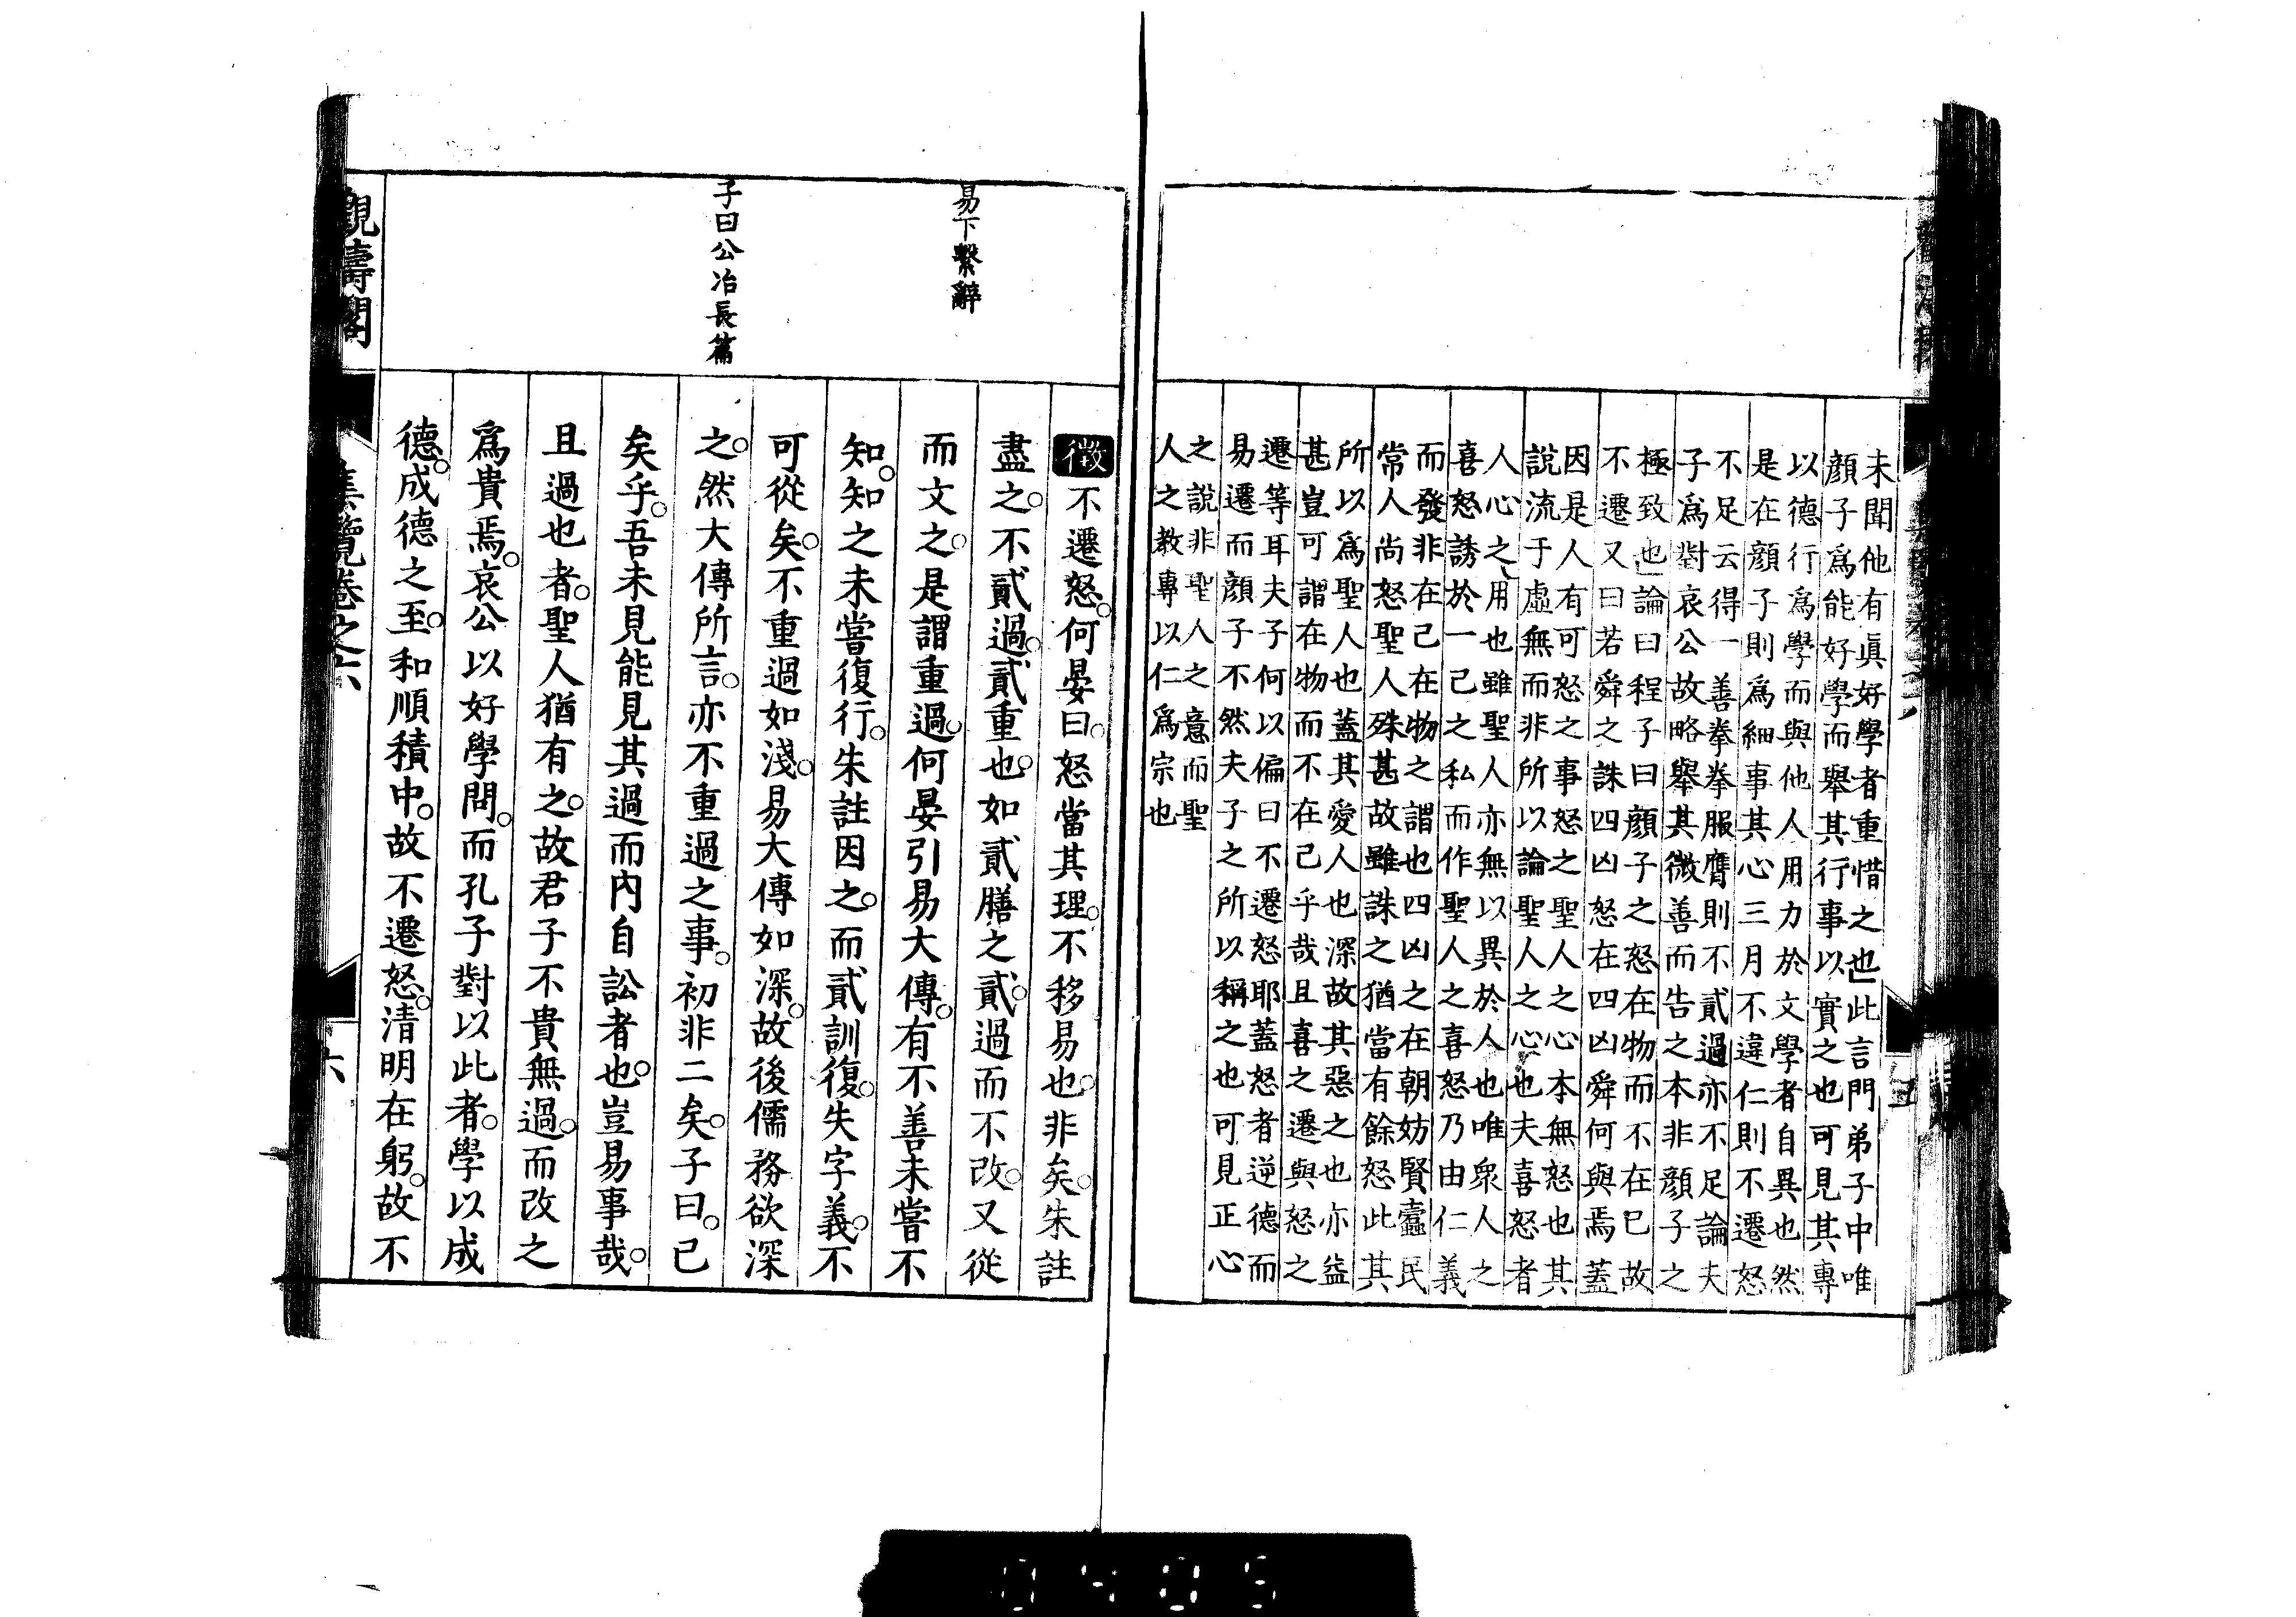 未聞他有眞好學者重惜之也此言門弟子中唯
顏子爲能好學而舉其行事以實之也可見其專
以德行爲學而與他人用力於文學者自異也然
是在顏子則爲細事其心三月不違仁則不遷怒
不足云得一善拳拳服膺則不貳過亦不足論夫
子爲對哀公故略舉其微善而告之本非顏子之
極致也論曰程子曰顏子之怒在物而不在已故
不遷又曰若舜之誅四凶怒在四凶舜何與焉蓋
因是人有可怒之事怒之聖人之心本無怒也其
說流于虛無而非所以論聖人之心也夫喜怒者
人心之用也雖聖人亦無以異於人也唯衆人之
喜怒誘於一己之私而作聖人之喜怒乃由仁義
而發非在己在物之謂也四凶之在朝妨賢蠹民
常人尚怒聖人殊甚故雖誅之猶當有餘怒此其
所以爲聖人也蓋其愛人也深故其惡之也亦益
甚豈可謂在物而不在己乎哉且喜之遷與怒之
遷等耳夫子何以偏曰不遷怒耶蓋怒者逆德而
易遷而顏子不然夫子之所以稱之也可見正心
之說非聖人之意而聖
人之教專以仁爲宗也
易下繫辭
子曰公冶長篇
徵不遷怒何晏曰怒當其理不移易也非矣朱註
盡之不貳過貳重也如貳膳之貳過而不改又從
而文之是謂重過何晏引易大傳有不善未嘗不
知知之未嘗復行朱註因之而貳訓復失字義不
可從矣不重過如淺易大傳如深故後儒務欲深
之然大傳所言亦不重過之事初非二矣子曰已
矣乎吾未見能見其過而內自訟者也豈易事哉
且過也者聖人猶有之故君子不貴無過而改之
爲貴焉哀公以好學問而孔子對以此者學以成
德成德之至和順積中故不遷怒清明在躬故不
觀濤閣
集覽卷之六
六